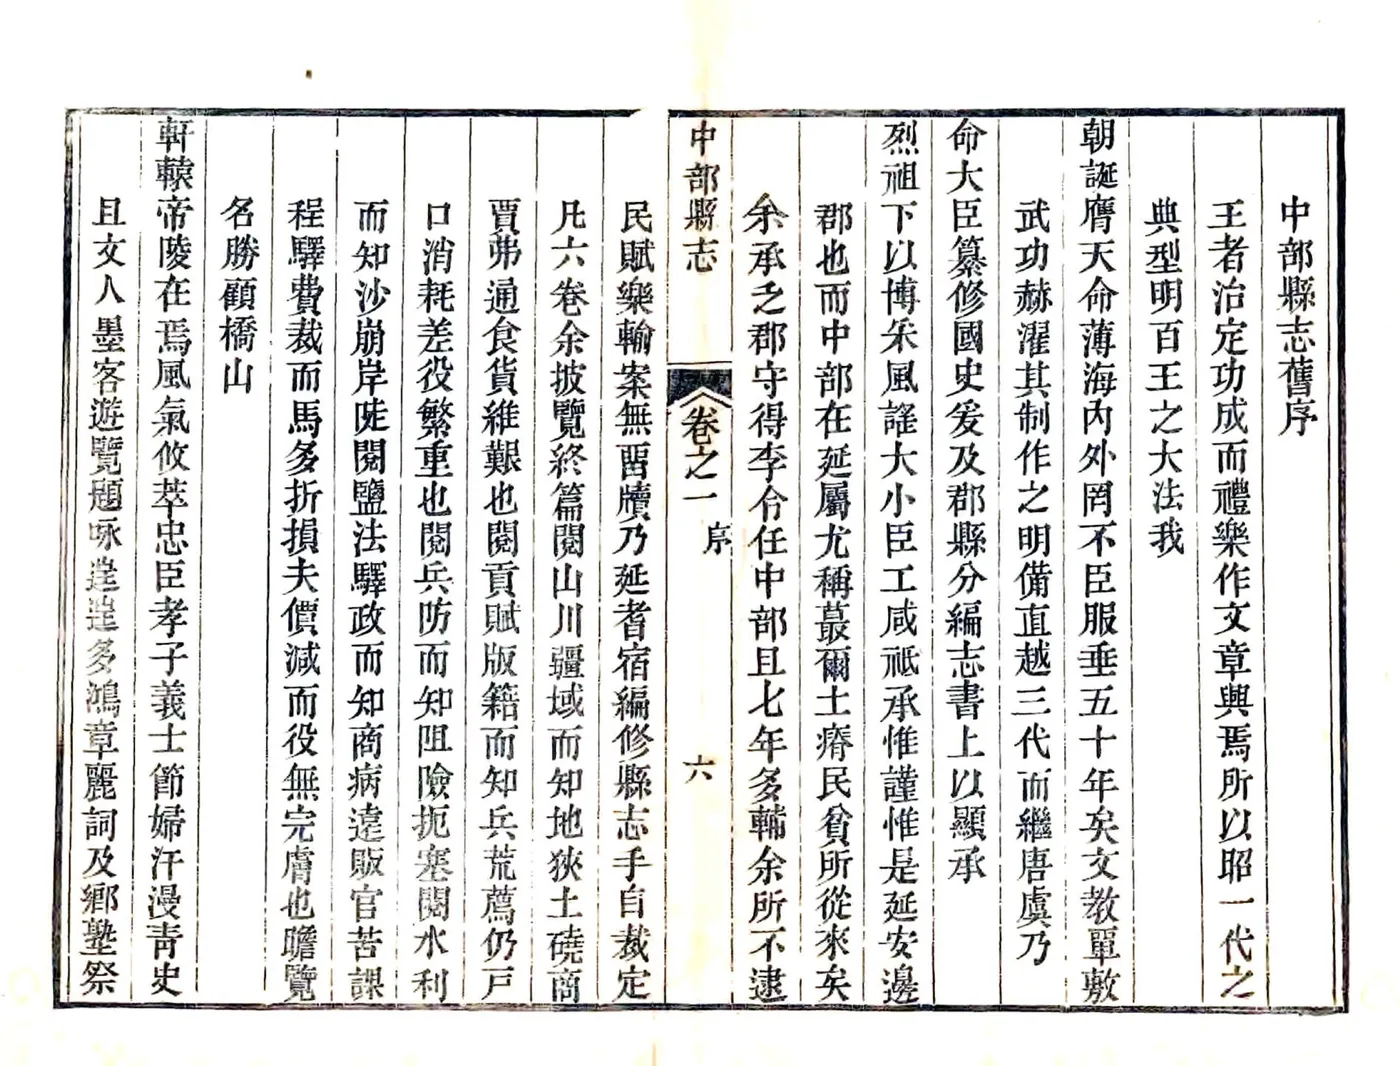 中部縣志舊序
王者治定功成而禮樂作文章興焉所以昭一代之
典型明百王之大法我
朝誕膺天命薄海內外罔不臣服垂五十年矣文教罩敷
武功赫濯其制作之明備直越三代而繼唐虞乃
命大臣纂修國史爰及郡縣分編志書上以顯承
烈祖下以博朱風謠大小臣工咸祗承惟謹惟是延安邊
郡也而中部在延屬尤稱蕞爾土瘠民貧所從來矣
余承乏郡守得李令任中部且七年多輔余所不逮
中部縣志
卷之一
序
六
民賦樂輸案無畱牘乃延耆宿編修縣志手自裁定
凡六卷余披覽終篇閱山川疆域而知地狹土磽商
賈弗通食貨維艱也閱貢賦版籍而知兵荒薦仍戸
口消耗差役繁重也閱兵防而知阻險扼塞閱水利
而知沙崩岸陡閱鹽法驛政而知商病遠販官苦課
程驛費裁而馬多折損夫價減而役無完膚也瞻覽
名勝顧橋山
軒轅帝陵在焉風氣攸萃忠臣孝子義士節婦汗漫青史
且文人墨客遊覽題咏遑遑多鴻章麗詞及鄉塾祭